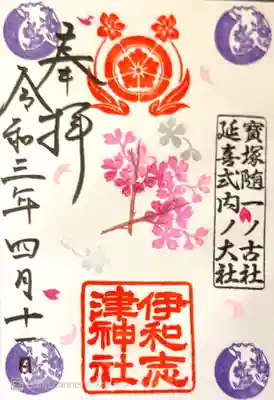 奉拝
令和三年四月十一日
寶塚随一ノ古社
延喜式内ノ大社
伊和志
津神社